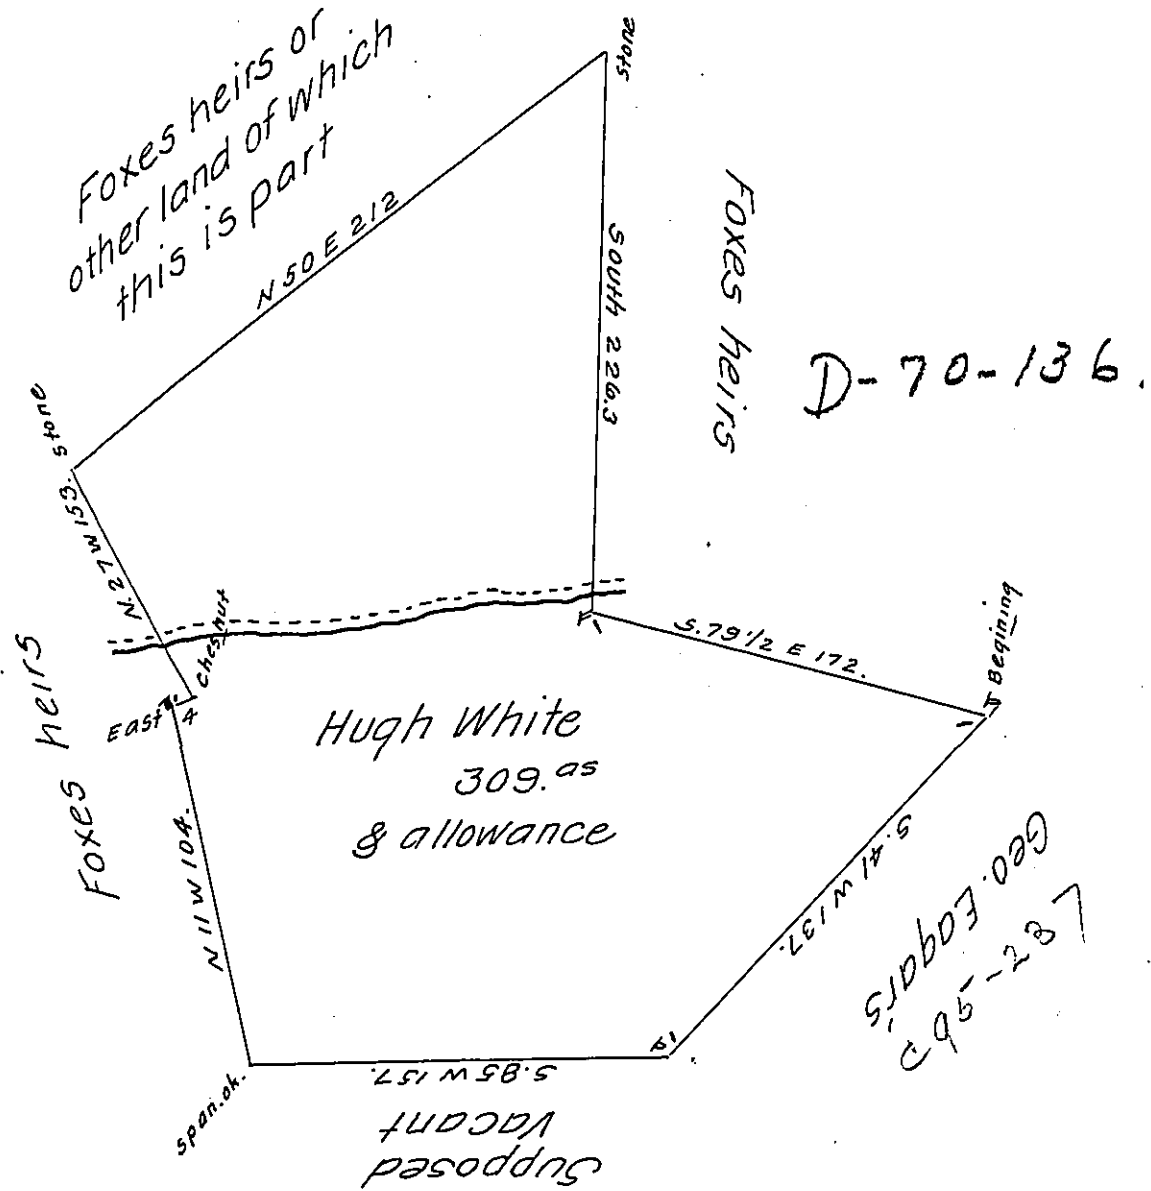 Foxes heirs or
other land of which
this is part
stone
N 50 E 212
South 226.3
Foxes heirs
D-70-136.
stone
N. 27 W 153.
Chesnut
East 4
Foxes heirs
S. 79 1/2 E 172.
Begining
Hugh White
309. as
& allowance
N 11 W 104.
S. 41 W 137.
Geo. Eagar's
span. ok.
S. 85 W 157.
Supposed
Vacant